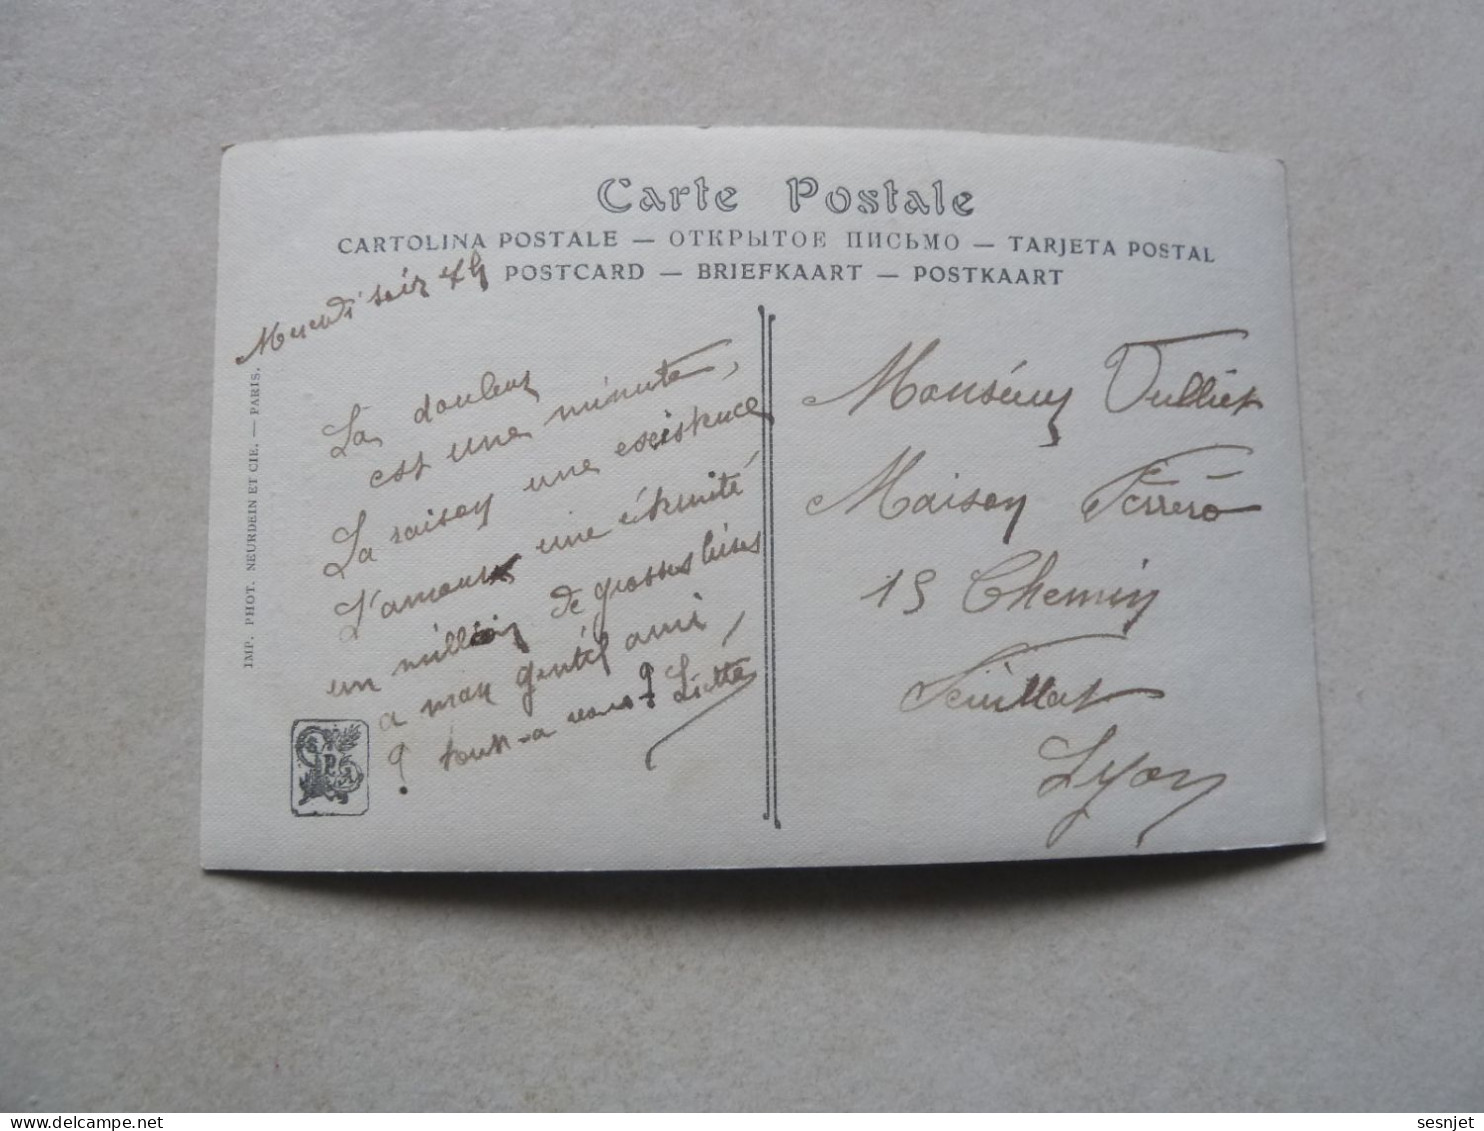 Carte Postale
CARTOLINA POSTALE — ОТКРЫТОЕ ПИСЬМО — TARJETA POSTAL
POSTCARD — BRIEFKAART — POSTKAART
soir
La douleur
est une minute,
La raison une existence
L'amour une éternité
un million de grosses bises
a mon gentil ami,
tout-a vous! Liette
IMP. PHOT. NEURDEIN ET CIE. — PARIS.
Monsieur Vulliet
Maison Ferrero
15 Chemin
Feuillat
Lyon
© sesnjet